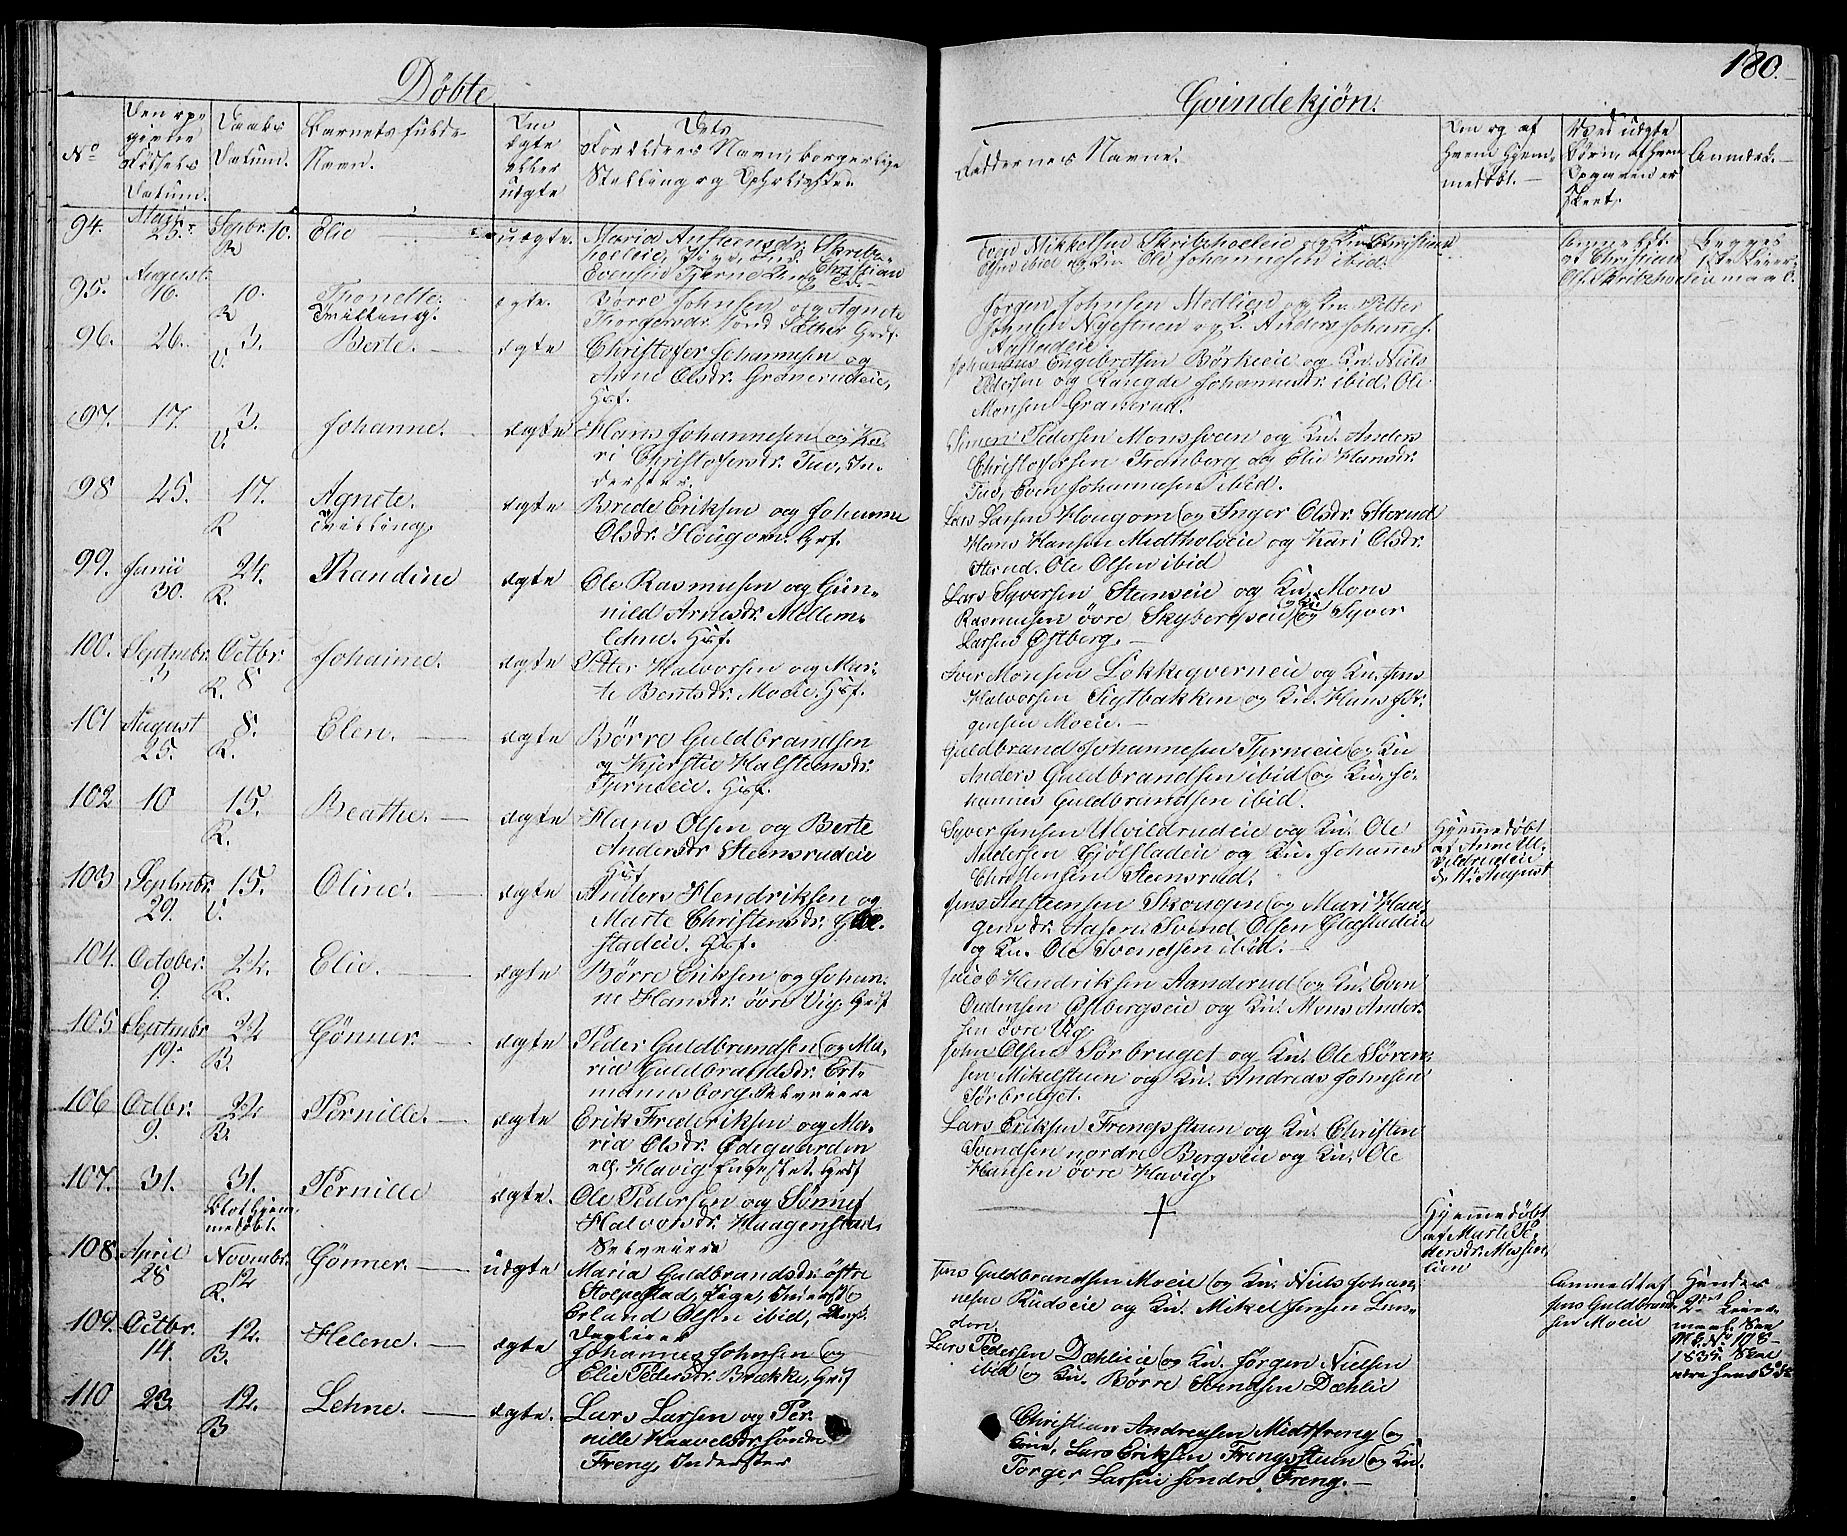 180.
Döbte
Qvindekjön.
No
Den op-
givne
Födsels
Datum.
Daabs
Datum.
Barnets fulde
Navn.
Om
ægte
eller
uægte
Dets
Forældres Navn, borgerlige
Stilling og Opholdsted.
Faddernes Navne.
Om og af
hvem hjem-
medöbt.
Ved uægte
Börn, af hvem
Opgaven er
skeet.
Anmærk.
94. Maii 25. Sepbr. 10. R Elie uægte. Maria Anstensdr. Skribs-
holeie, Pige, og Christian
Evensen Tjerne
Even Mikkelsen Skribsholeie og Kn. Christian
Olsen ibid og Kn. Ole Johannesen ibid.
Anmeldt
af Christian
Ols. Skribsholeie
Begges
1ste Leier-
maal.
95. August 16. 10. R Thonette.
Tvilling. ægte. Börre Johnsen og Agnete
Thorgersdr. Sæther Grf.
Jörgen Johnsen Medlien og Kn. Petter
Johnsen Nyestuen og K. Anders Johannes.
96. 26. 3. V. Berte. ægte Christofer Johannesen og
Anne Olsdr. Graverudeie,
Huf.
Johannes Engebretsen Börkeeie og Kn. Niels
Pedersen og Rangde Johannesdr. ibid. Ole
Monsen Graverud.
97. 17. 3. V. Johanne. ægte Hans Johannesen og Ka-
ri Christofersdr. Tuv, In-
derster.
Simen Pedersen Monssveen og Kn. Anders
Christofersen Fronberg og Elie Hansdr.
Tuv, Even Johannesen ibid.
98 25. 17. R Agnete.
Tvilling. ægte Brede Eriksen og Johanne
Olsdr. Hougom. Grf.
Lars Larsen Hougom og Inger Olsdr. Sterud
Hans Hansen Midtholeie og Kari Olsdr.
Sterud. Ole Olsen ibid
99. Junii 30. 24. R. Randine ægte Ole Rasmusen og Gun-
nild Arnesdr. Mellem-
Lehne. Huf.
Lars Syversen Stenseie og Kn. Mons
Rasmusen övre Skybergseie og Kn. og Syver
Larsen Östberg.
100. Septmbr. 3 Octbr. 8 R. Johanne. ægte Petter Halvorsen og Mar-
te Berntsdr. Moeie. Huf.
Iver Monsen Lökkeqverneie og Kn. Jens
Halvorsen Sigtbakken og Kn. Hans Jör-
gensen Moeie.
101 August 25. 8. R. Elen. ægte Börre Guldbrandsen
og Kjerstie Halsteensdr.
Tjerneeie. Huf.
Guldbrand Johannesen Tjerneeie og Kn
Anders Guldbrandsen ibid og Kn. Jo-
hannes Guldbrandsen ibid.
102 10 15. R. Beathe. ægte Hans Olsen og Berte
Andersdr Steensrudeie
Huf
Syver Jensen Ulvildrudeie og Kn. Ole
Andersen Gjölstadeie og Kn. Johannes
Christensen Steensrud.
Hjemmedöbt
af Anne Ul-
vildrudeie
d. 11. August
103 Septmbr. 29. 15. V. Oline. ægte Anders Hendriksen og
Marte Christensdr. Glæ-
stadeie. Huf.
Jens Asteensen Skougen og Mari Haa-
gensdr. Aasen. Svend Olsen Glæstadeie
og Kn. Ole Svendsen ibid.
104. October. 9. 24. R. Elie. ægte Börre Eriksen og Johan-
ne Hansdr. övre Vig. Grf
Jacob Hendriksen Aanderud og Kn. Even
Oudensen Östbergseie og Kn. Mons Ander-
sen övre Vig.
105 Septmbr 19. 24 B. Gönner. ægte Peder Guldbrandsen og Ma-
ria Guldbrandsdr. Ert-
mannsborg Selveiere
John Olsen Sörbruget og Kn. Ole Sören-
sen Mikelstuen og Kn. Andreas Johnsen
Sörbruget.
106 Octbr. 9. 24 R. Pernille. ægte Erik Frederiksen og Ma-
ria Olsdr. Ödeguarden
ell. Havig Engestet. Grf
Lars Eriksen Frengsstuen og Kn. Christen
Svendsen nordre Bergseie og Kn. Ole
Hansen övre Havig.
107. 31. 31.
Blot hjem-
medöbt. Pernille ægte. Ole Pedersen og Sönnef
Halvorsdr. Haagenstad.
Selveiere
†
Hjemmedöbt
af Marte Pe-
dersdr. Messen-
lien
108. April 28 Novembr. 12 R. Gönner. uægte Maria Guldbrandsdr. östre
Stolpestad, Pige, Inderst og
Erland Olsen ibid,
Jens Guldbrandsen Moeie og Kn. Niels Johan-
nesen Rudseie og Kn. Mikel Jensen Lun-
den.
Anmeldt af
Jens Guldbrand-
sen Moeie
Hendes
2det Leier-
maal. See
No 178-
1835.
109. Octbr. 14. 12. B. Helene. ægte Johannes Johnsen og
Elie Pedersdr. Brække, Grf
Lars Pedersen Dæhlieie og Kn. Jörgen Nielsen
ibid og Kn. Börre Svendsen Dæhlie
110 23. 12. B Lehne. ægte. Lars Larsen og Per-
nille Haavelsdr. söndre
Freng, Inderster
Christian Andreasen Midtfreng og
Kone, Lars Eriksen Frengsstuen og Kn.
Torger Larsen söndre Freng.